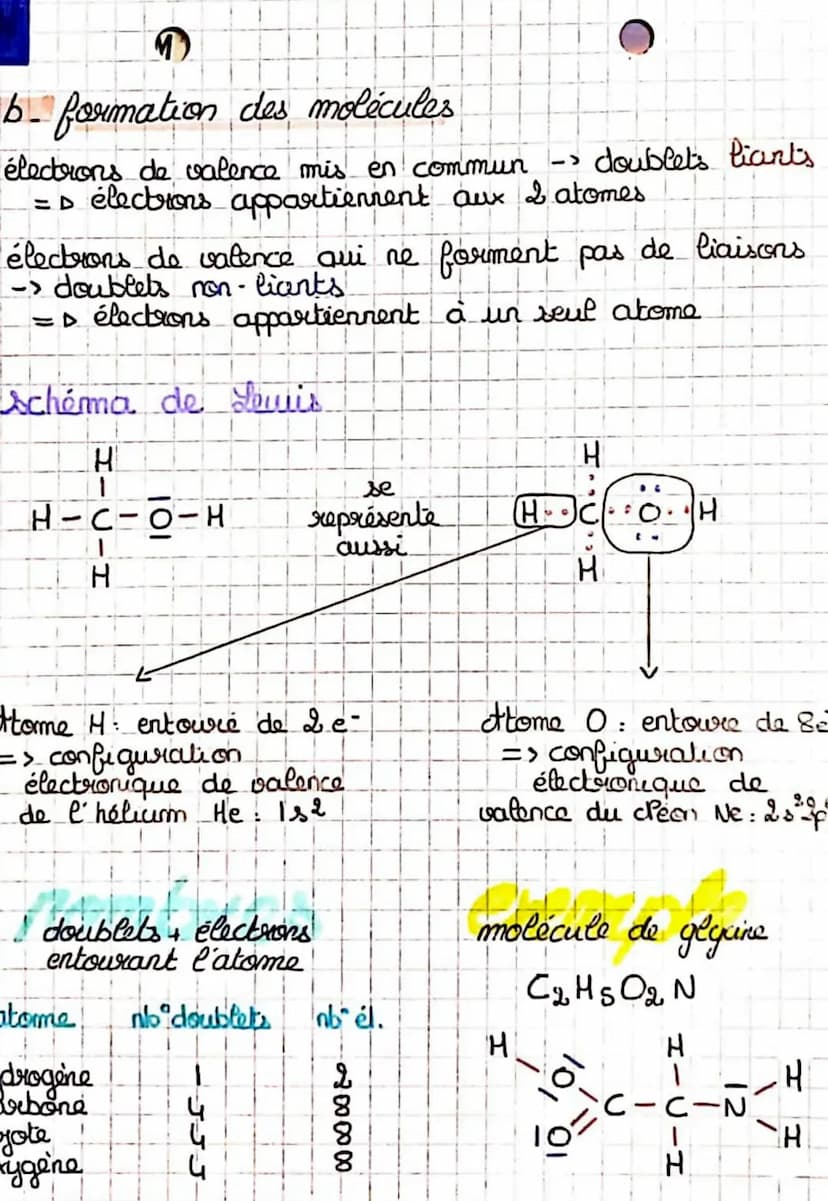 b- formation des molécules
électrons de valence mis en commun -> doublets liants
=> électrons appartiennent aux 2 atomes
électrons de valence qui ne forment pas de liaisons
-> doublets non-liants
=> électrons appartiennent à un seul atome
schéma de Lewis
H
H - C - O - H
H
se
représente
aussi
H
H C O H
H
Atome H : entouré de 2 e-
=> configuration
électronique de valence
de l'hélium He : 1s2
Atome O : entoure de 8e-
=> configuration
électronique de
valence du Néon Ne : 2s²2p
nombres
! doublets + électrons
entourant l'atome
atome nb° doublets nb° él.
drogène 1 2
rbone 4 8
zote 4 8
xygène 4 8
exemple
molécule de glycine
C2H5O2N
H H
O H
C - C - N
O H
H